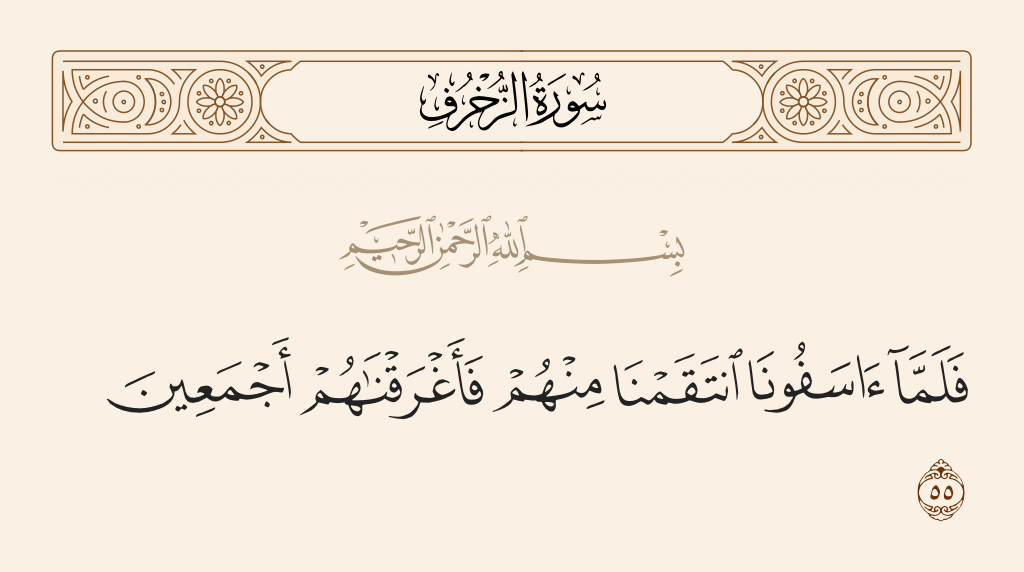 سُورَةُ الزُّخْرُفِ
بِسْمِ ٱللَّهِ ٱلرَّحْمَٰنِ ٱلرَّحِيمِ
فَلَمَّآ ءَاسَفُونَا ٱنتَقَمْنَا مِنْهُمْ فَأَغْرَقْنَٰهُمْ أَجْمَعِينَ
٥٥